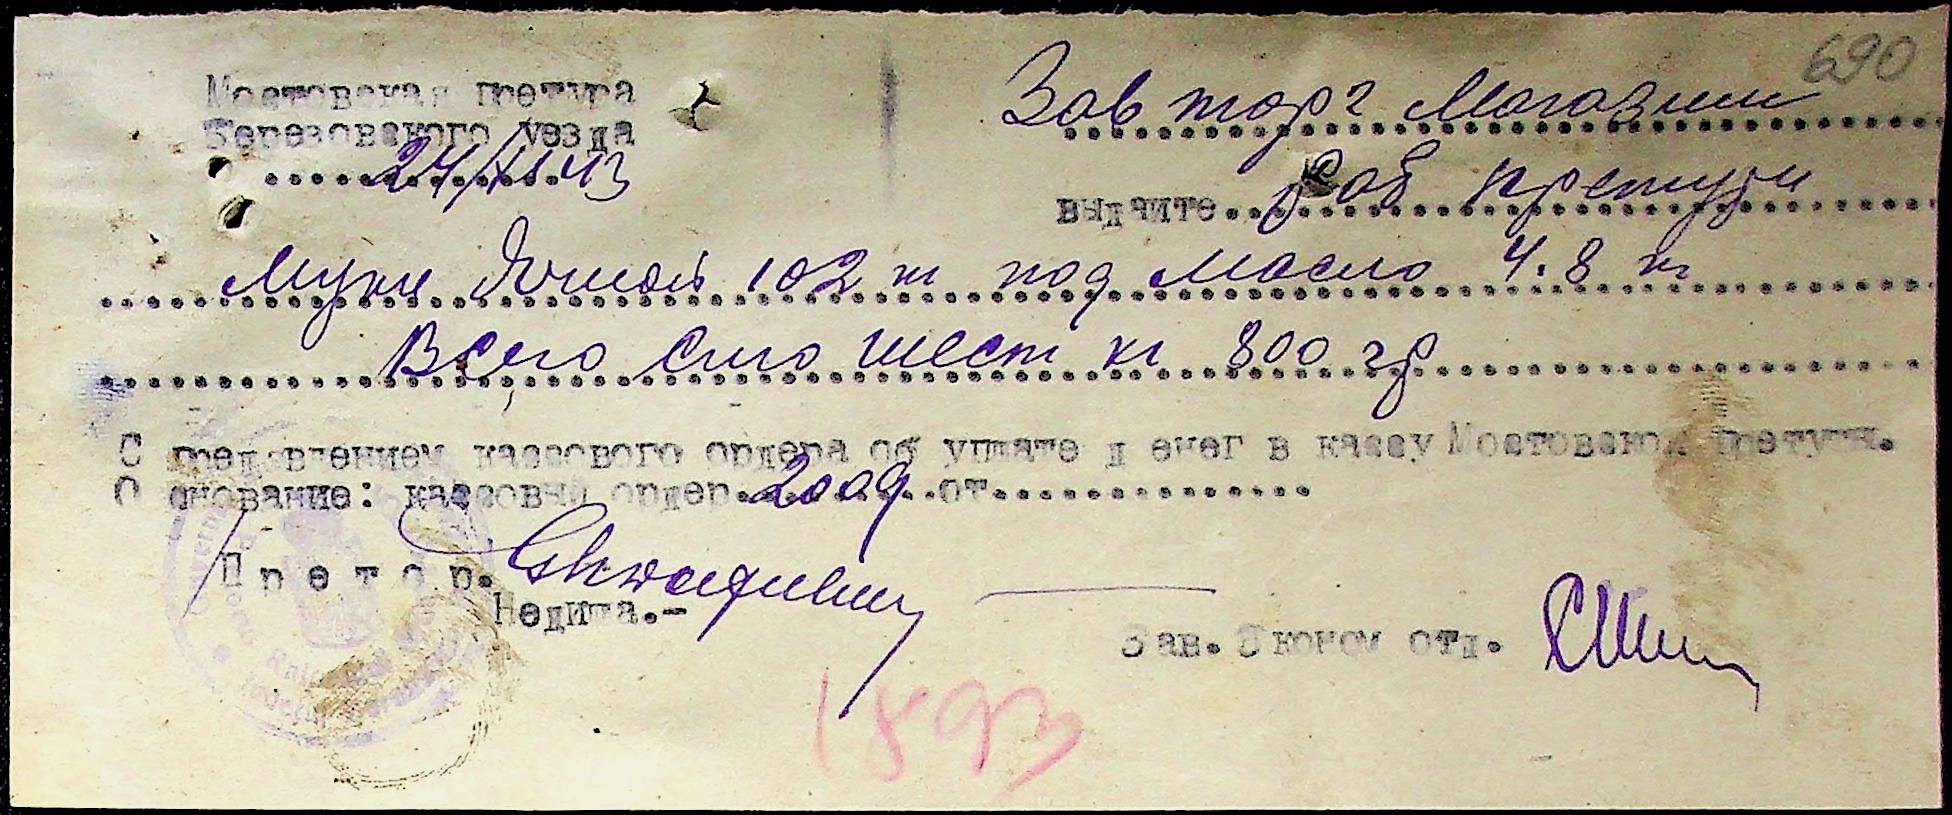 690
Мостовская претура
Березовского уезда
24/XI 43
Зав торг Магазин
выдайте раб претури
Муки Ячной 102 кг под масло 4.8 кг
Всего сто шест кг 800 гр
С предявлением кассового ордера об уплате д енег в кассу Мостовской претуры.
О снование: кассовый ордер 2009 от
П р е т о р.
Недита.-
Зав. Эконом отд.
1893